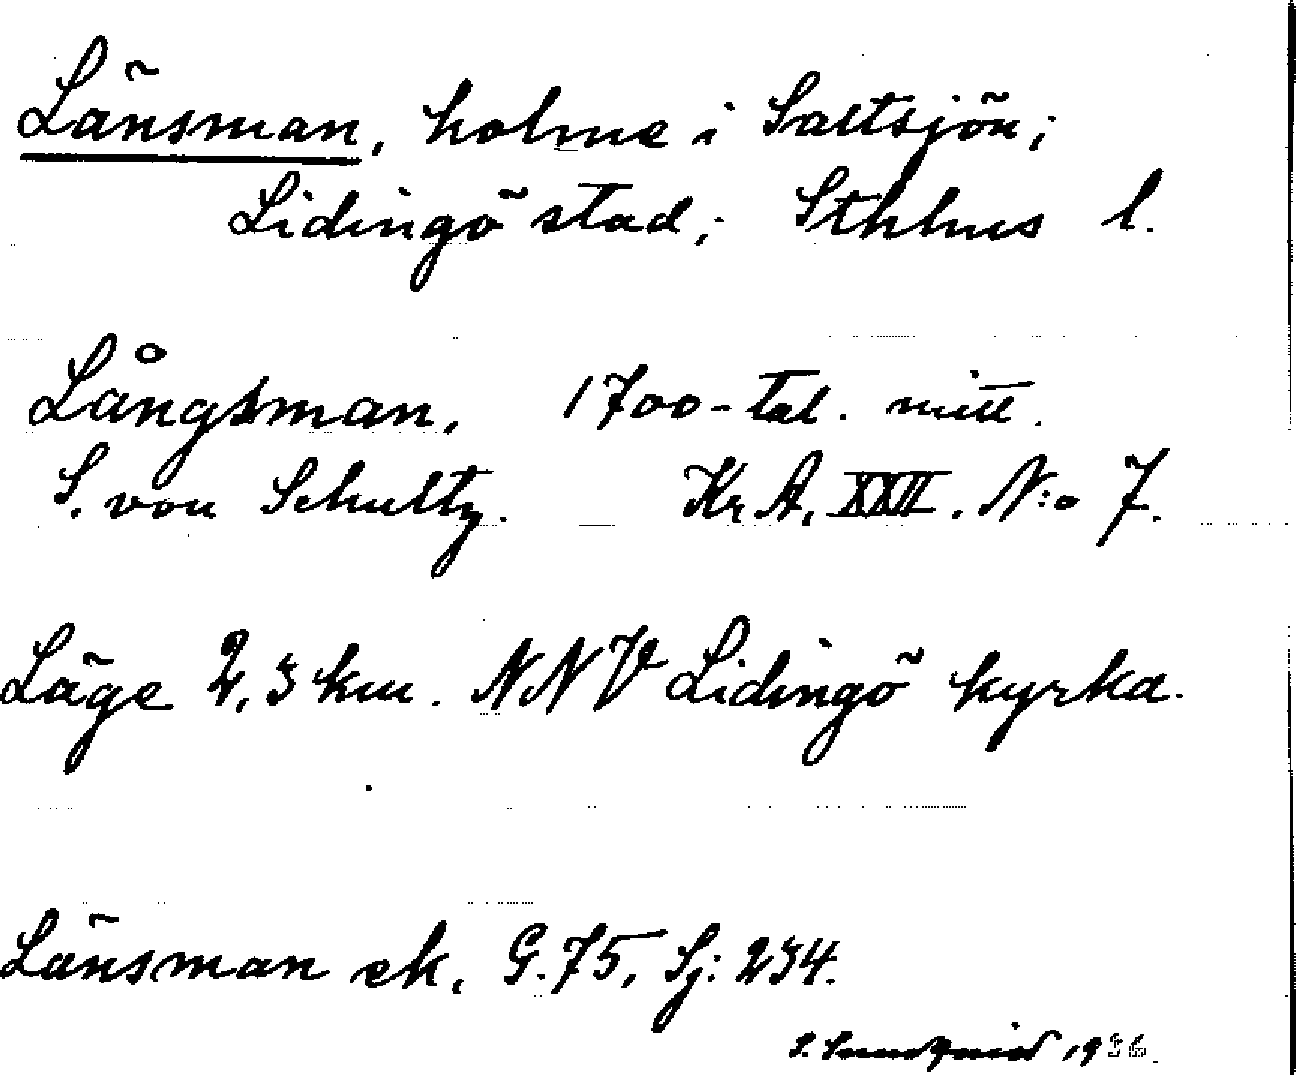 Länsman, holme i Saltsjön;
Lidingö stad; Sthlms l.
Långsman, 1700-tal. mitt.
S. von Schultz. Kr A. XXII. N:o 7.
Läge 2,3 km. NNV Lidingö kyrka.
Länsman ek. G. 75, Sj: 234.
S. 19